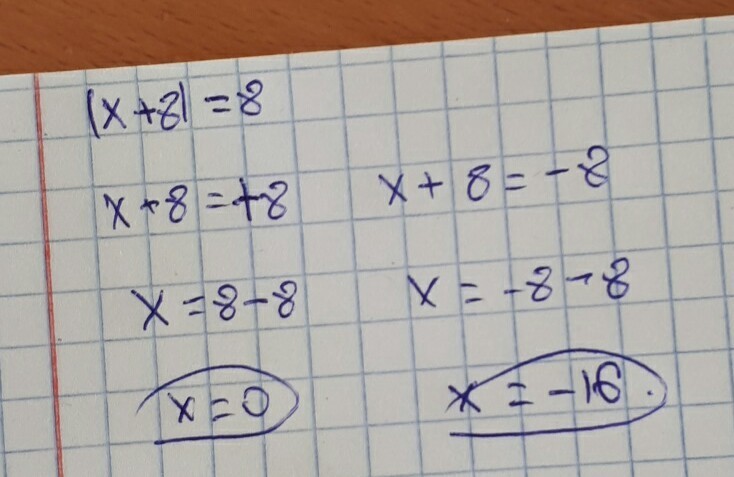 |x+8| = 8
x+8 = +8
x + 8 = -8
x = 8-8
x = -8-8
x = 0
x = -16.